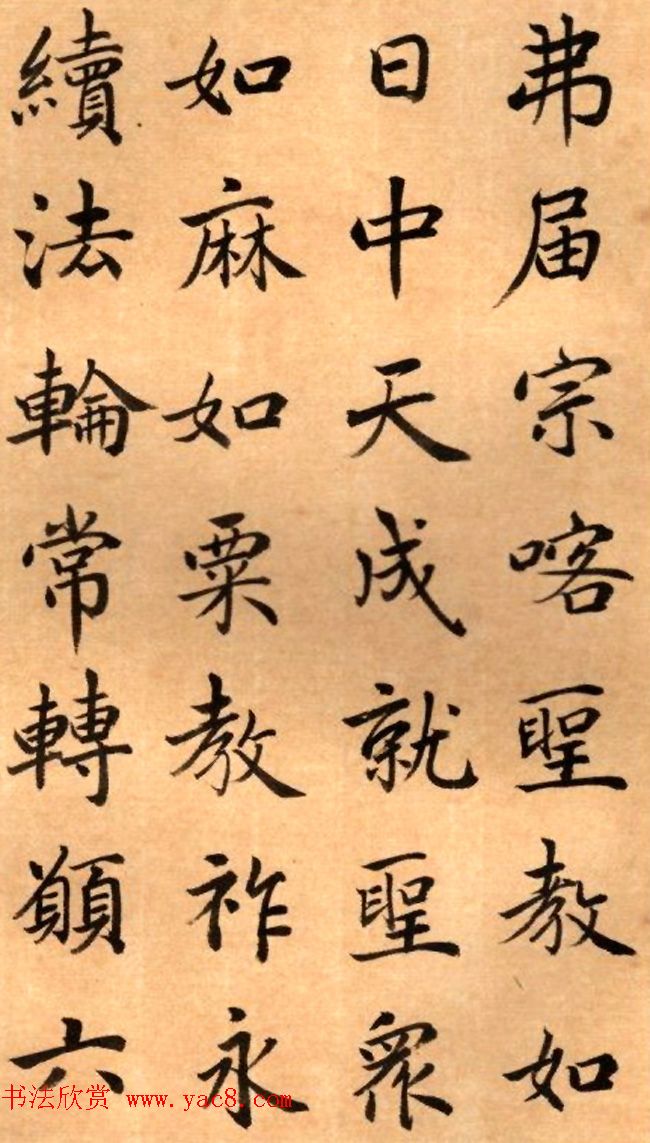 弗届宗喀聖教如
日中天成就聖衆
如麻如粟教祚永
續法輪常轉願六
书法欣赏 www.yac8.com